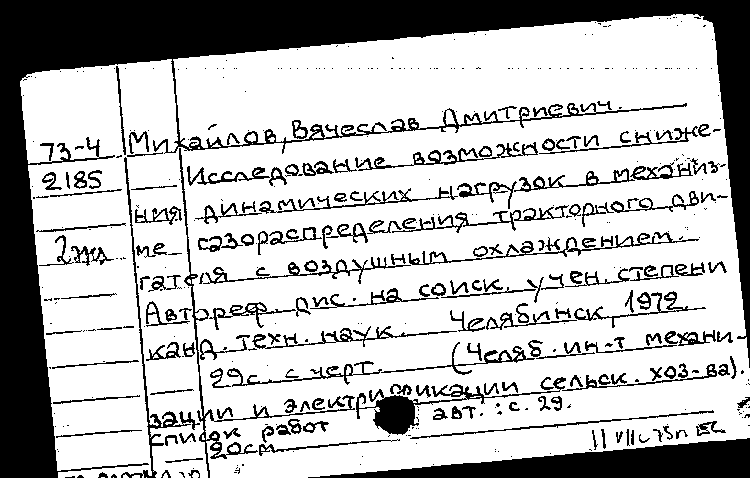 73-4 Михайлов, Вячеслав Дмитриевич.
2185 Исследование возможности сниже-
ния динамических нагрузок в механиз-
ме газораспределения тракторного дви-
гателя с воздушным охлаждением.
Автореф. дис. на соиск. учен. степени
канд. техн. наук. Челябинск, 1972.
29с. с черт. (Челяб. ин-т механи-
зации и электрификации сельск. хоз-ва).
список работ авт.: с. 29.
20см.